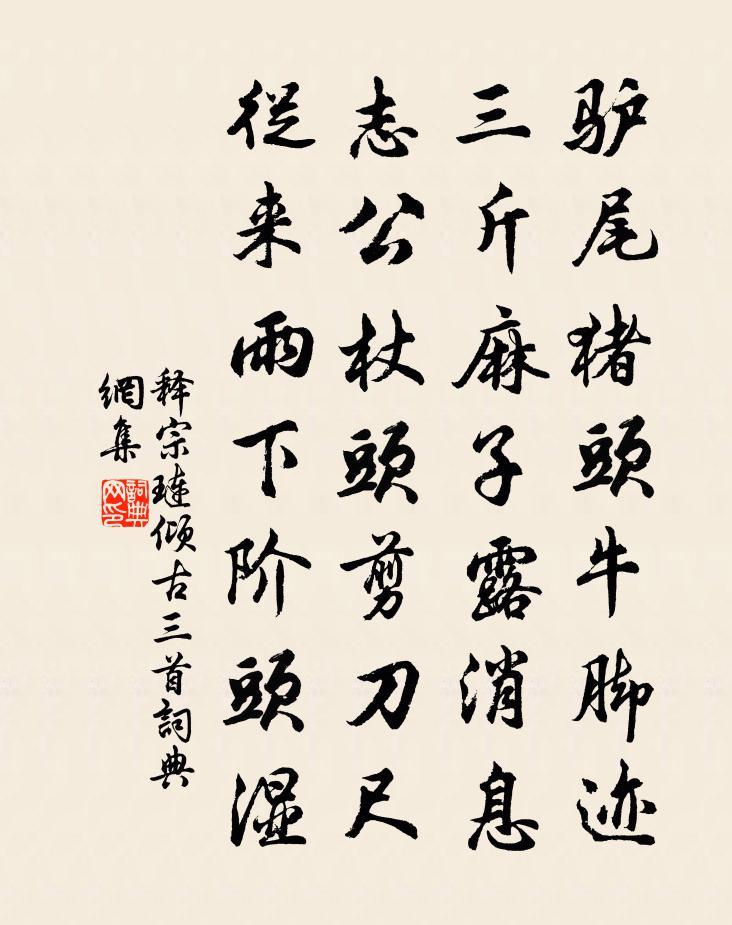 驴尾猪頭牛脚迹
三斤麻子露消息
志公杖頭剪刀尺
從来雨下阶頭湿
释宗琏倾古三首詞典
網集
詞典
网印